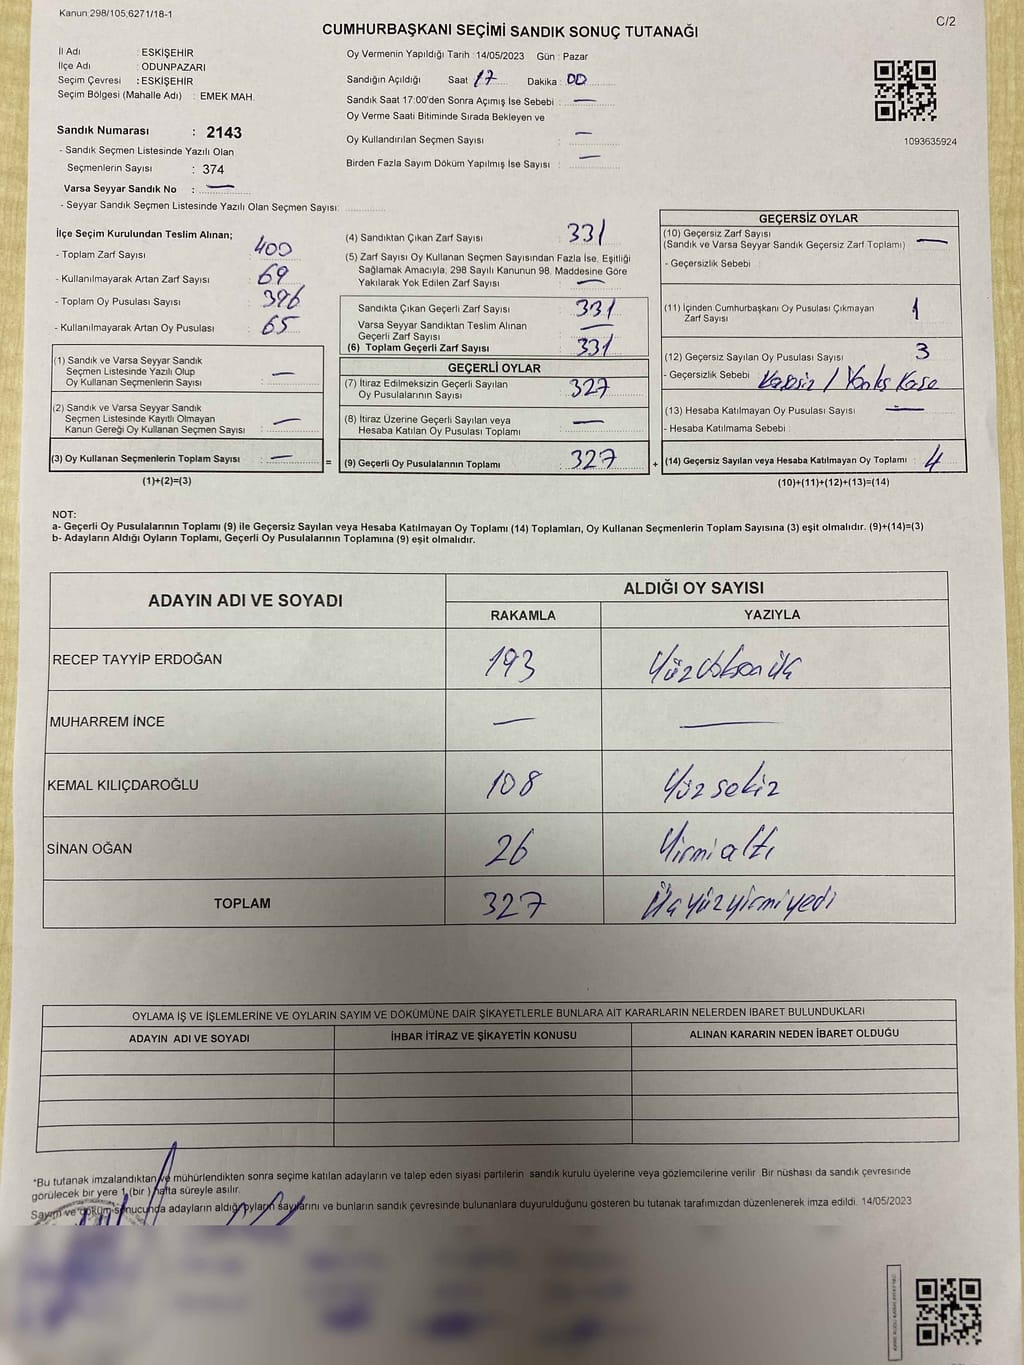 Kanun:298/105;6271/18-1
C/2
CUMHURBAŞKANI SEÇİMİ SANDIK SONUÇ TUTANAĞI
İl Adı : ESKİŞEHİR
İlçe Adı : ODUNPAZARI
Seçim Çevresi : ESKİŞEHİR
Seçim Bölgesi (Mahalle Adı) : EMEK MAH.
Sandık Numarası : 2143
- Sandık Seçmen Listesinde Yazılı Olan
Seçmenlerin Sayısı : 374
Varsa Seyyar Sandık No : —
- Seyyar Sandık Seçmen Listesinde Yazılı Olan Seçmen Sayısı:
Oy Vermenin Yapıldığı Tarih : 14/05/2023 Gün : Pazar
Sandığın Açıldığı Saat 17 Dakika : 00
Sandık Saat 17:00'den Sonra Açımış İse Sebebi : —
Oy Verme Saati Bitiminde Sırada Bekleyen ve
Oy Kullandırılan Seçmen Sayısı : —
Birden Fazla Sayım Döküm Yapılmış İse Sayısı : —
1093635924
İlçe Seçim Kurulundan Teslim Alınan;
- Toplam Zarf Sayısı : 400
- Kullanılmayarak Artan Zarf Sayısı : 69
- Toplam Oy Pusulası Sayısı : 396
- Kullanılmayarak Artan Oy Pusulası : 65
(1) Sandık ve Varsa Seyyar Sandık
Seçmen Listesinde Yazılı Olup
Oy Kullanan Seçmenlerin Sayısı : —
(2) Sandık ve Varsa Seyyar Sandık
Seçmen Listesinde Kayıtlı Olmayan
Kanun Gereği Oy Kullanan Seçmen Sayısı : —
(3) Oy Kullanan Seçmenlerin Toplam Sayısı : —
(1)+(2)=(3)
=
(4) Sandıktan Çıkan Zarf Sayısı : 331
(5) Zarf Sayısı Oy Kullanan Seçmen Sayısından Fazla İse, Eşitliği
Sağlamak Amacıyla, 298 Sayılı Kanunun 98. Maddesine Göre
Yakılarak Yok Edilen Zarf Sayısı : —
Sandıkta Çıkan Geçerli Zarf Sayısı : 331
Varsa Seyyar Sandıktan Teslim Alınan
Geçerli Zarf Sayısı : —
(6) Toplam Geçerli Zarf Sayısı : 331
GEÇERLİ OYLAR
(7) İtiraz Edilmeksizin Geçerli Sayılan
Oy Pusulalarının Sayısı : 327
(8) İtiraz Üzerine Geçerli Sayılan veya
Hesaba Katılan Oy Pusulası Toplamı : —
(9) Geçerli Oy Pusulalarının Toplamı : 327
+
GEÇERSİZ OYLAR
(10) Geçersiz Zarf Sayısı
(Sandık ve Varsa Seyyar Sandık Geçersiz Zarf Toplamı) : —
- Geçersizlik Sebebi :
(11) İçinden Cumhurbaşkanı Oy Pusulası Çıkmayan
Zarf Sayısı : 1
(12) Geçersiz Sayılan Oy Pusulası Sayısı : 3
- Geçersizlik Sebebi : / Yanlış Kase
(13) Hesaba Katılmayan Oy Pusulası Sayısı : —
- Hesaba Katılmama Sebebi :
(14) Geçersiz Sayılan veya Hesaba Katılmayan Oy Toplamı : 4
(10)+(11)+(12)+(13)=(14)
NOT:
a- Geçerli Oy Pusulalarının Toplamı (9) ile Geçersiz Sayılan veya Hesaba Katılmayan Oy Toplamı (14) Toplamları, Oy Kullanan Seçmenlerin Toplam Sayısına (3) eşit olmalıdır. (9)+(14)=(3)
b- Adayların Aldığı Oyların Toplamı, Geçerli Oy Pusulalarının Toplamına (9) eşit olmalıdır.
ADAYIN ADI VE SOYADI
ALDIĞI OY SAYISI
RAKAMLA YAZIYLA
RECEP TAYYİP ERDOĞAN 193 Yüzdoksanüç
MUHARREM İNCE — —
KEMAL KILIÇDAROĞLU 108 Yüzsekiz
SİNAN OĞAN 26 Yirmialtı
TOPLAM 327 Üçyüzyirmiyedi
OYLAMA İŞ VE İŞLEMLERİNE VE OYLARIN SAYIM VE DÖKÜMÜNE DAİR ŞİKAYETLERLE BUNLARA AİT KARARLARIN NELERDEN İBARET BULUNDUKLARI
ADAYIN ADI VE SOYADI İHBAR İTİRAZ VE ŞİKAYETİN KONUSU ALINAN KARARIN NEDEN İBARET OLDUĞU
*Bu tutanak imzalandıktan ve mühürlendikten sonra seçime katılan adayların ve talep eden siyasi partilerin sandık kurulu üyelerine veya gözlemcilerine verilir. Bir nüshası da sandık çevresinde
görülecek bir yere 1 (bir) hafta süreyle asılır.
Sayım ve döküm sonucunda adayların aldığı oyların sayılarını ve bunların sandık çevresinde bulunanlara duyurulduğunu gösteren bu tutanak tarafımızdan düzenlenerek imza edildi. 14/05/2023